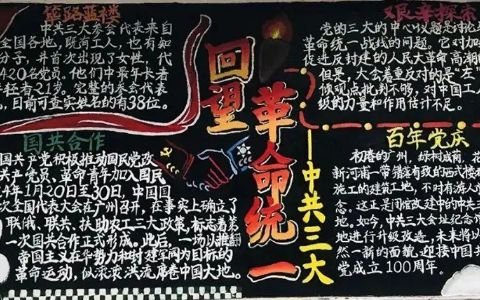 筚路蓝缕
中共三大参会代表来自
全国各地，既有工人，也有知
分子，并首次出现了女性，代
420名党员，他们中最年长者
年轻者21岁，完整的参会代表
目前可查实姓名的有38位。
国共合作
国共产党积极推动国民党改
共产党员，革命青年加入国民
24年1月20日至30日，中国国
次全国代表大会在广州召开，在事实上确立了
联俄、联共、扶助农工三大政策，标志着第
一次国共合作正式形成。此后，一场以推翻
帝国主义在华势力和封建军阀为目标的
革命运动，似滚滚洪流席卷中国大地。
回望
革命统一
——中共三大
艰辛探索
党的三大的中心议题是讨论与
革命统一战线的问题。它对加
促进反封建的人民大革命高潮的
但是，大会着重反对的是"左"
倾观点批判不够，对中国工人
级的力量和作用估计不足。
百年党庆
初春的广州，
新河浦一带错落有致的西式楼
施工的建筑工地，不时有游人
念。这正是闭馆改建中的中共三
地。如今，中共三大会址纪念
地进行升级改造，未来将以
然一新的面貌，迎接中国共
党成立100周年。